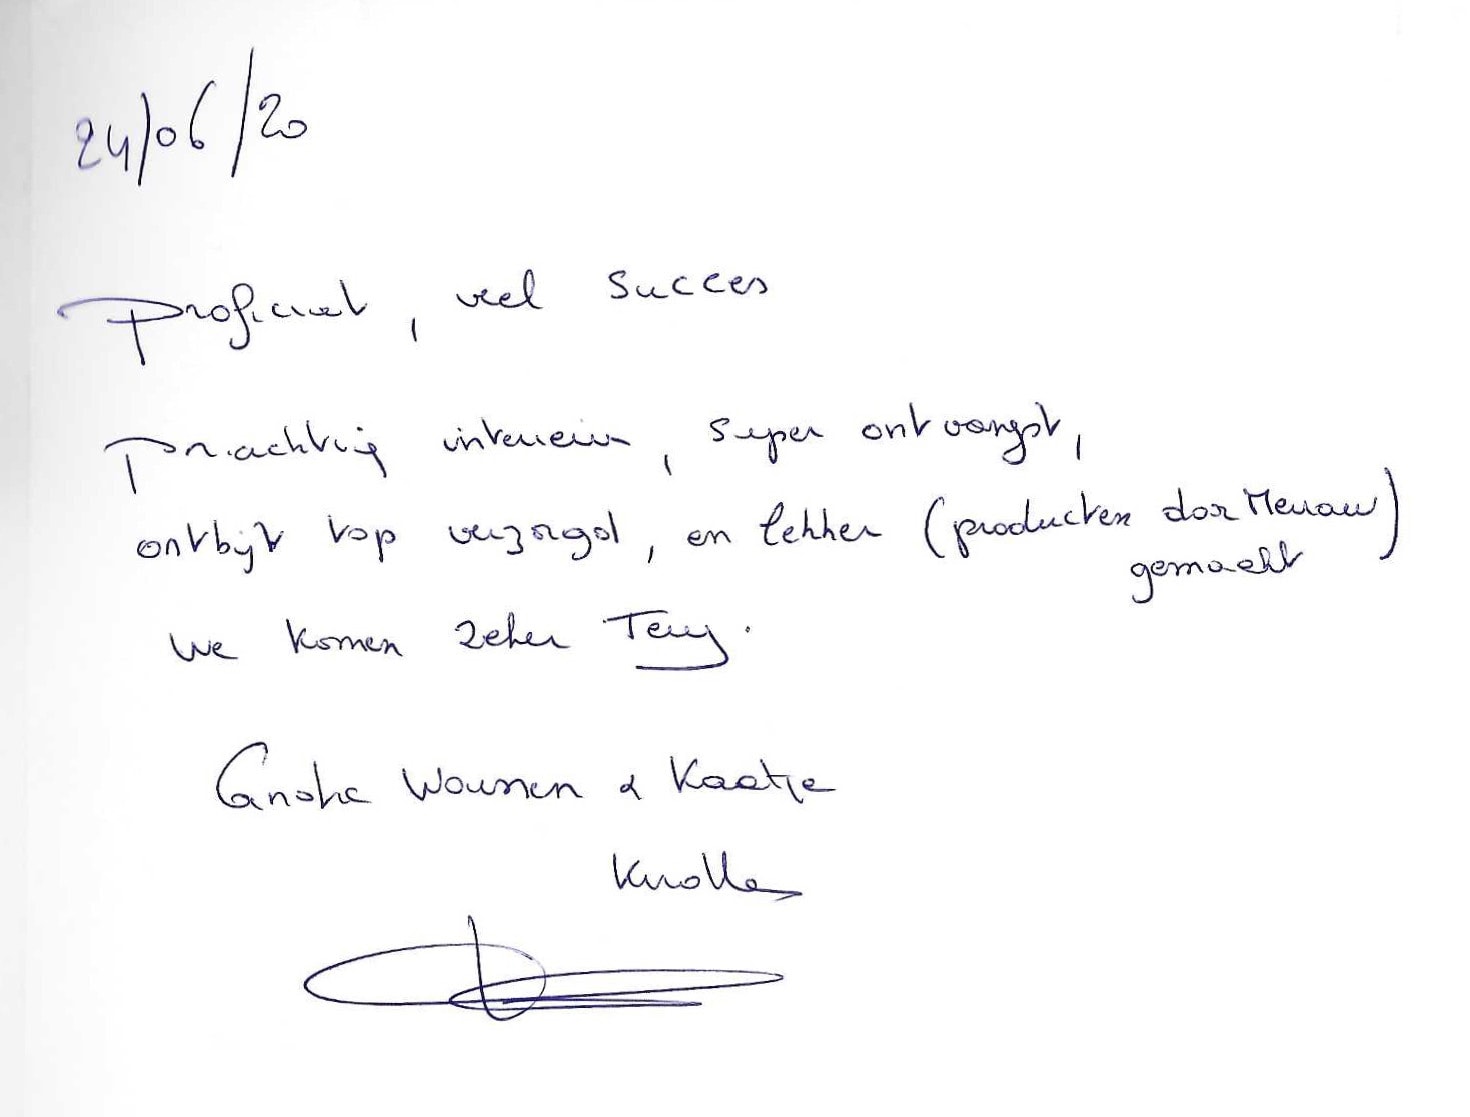 24/06/20
Proficiat, veel succes
prachtig interieur, super ontvangst,
ontbijt top verzorgd, en lekker (producten door
gemaakt)
we komen zeker Terug.
& Kaatje